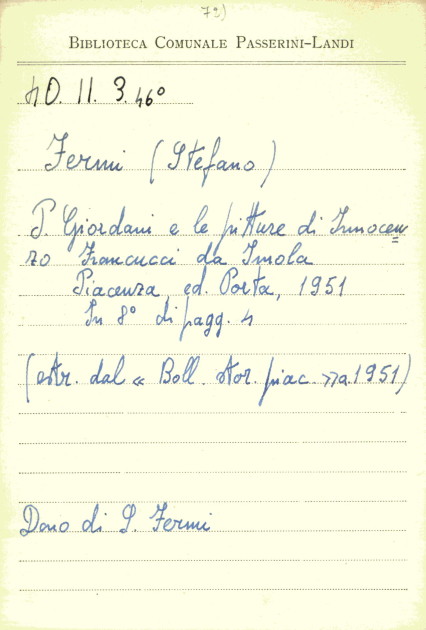 79)
BIBLIOTECA COMUNALE PASSERINI-LANDI
4D. II. 3. 46º
Fermi (Stefano)
P. Giordani e le pitture di Innocen=
zo Francucci da Imola
Piacenza, ed. Porta, 1951
In 8º di pagg. 4
(estr. dal « Boll. stor. piac. » a. 1951)
Dono di S. Fermi